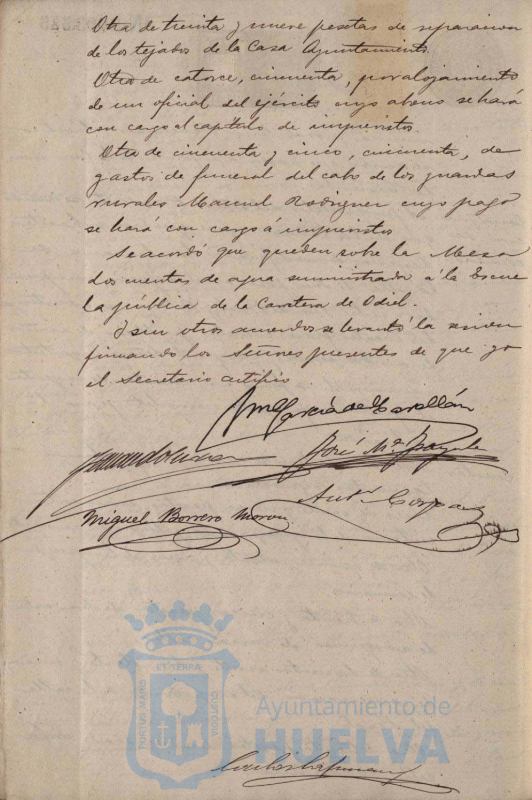 Otra de treinta y nueve pesetas de reparacion
de los tejados de la Casa Ayuntamiento.
Otra de catorce, cincuenta, por alojamiento
de un oficial del ejército cuyo abono se hará
con cargo al capítulo de imprevistos.
Otra de cincuenta y cinco, cincuenta, de
gastos de funeral del cabo de los guardas
rurales Manuel Rodriguez cuyo pago
se hará con cargo á imprevistos
Se acordó que queden sobre la Mesa
dos cuentas de agua suministrada á la Escue
la pública de la Carretera de Odiel.
Y sin otros acuerdos se levantó la sesion
firmando los Señores presentes de que yo
el Secretario certifico
García de
José Mª
Antº
Miguel Borrero Moron
PORTUS MARIS ET TERRÆ CUSTODIA
Ayuntamiento de
HUELVA